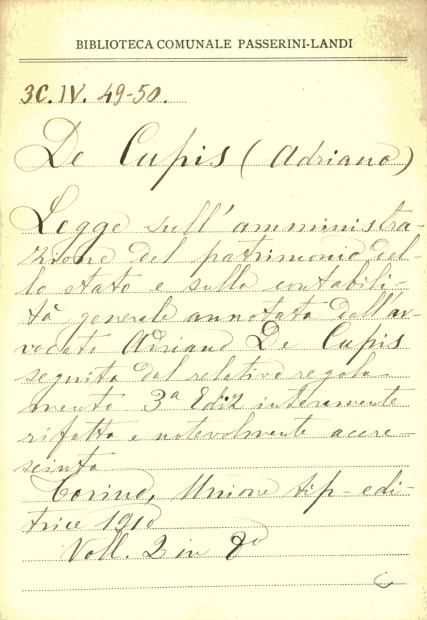 BIBLIOTECA COMUNALE PASSERINI-LANDI
3C. IV. 49-50.
De Cupis (Adriano)
Legge sull'amministra-
zione del patrimonio del-
lo stato e sulla contabili-
tà generale annotata dall'av-
vocato Adriano De Cupis
seguita dal relativo regola-
mento 3ª Ediz interamente
rifatta e notevolmente accre-
sciuta
Torino, Unione tip-edi-
trice 1910
Voll. 2 in 8º